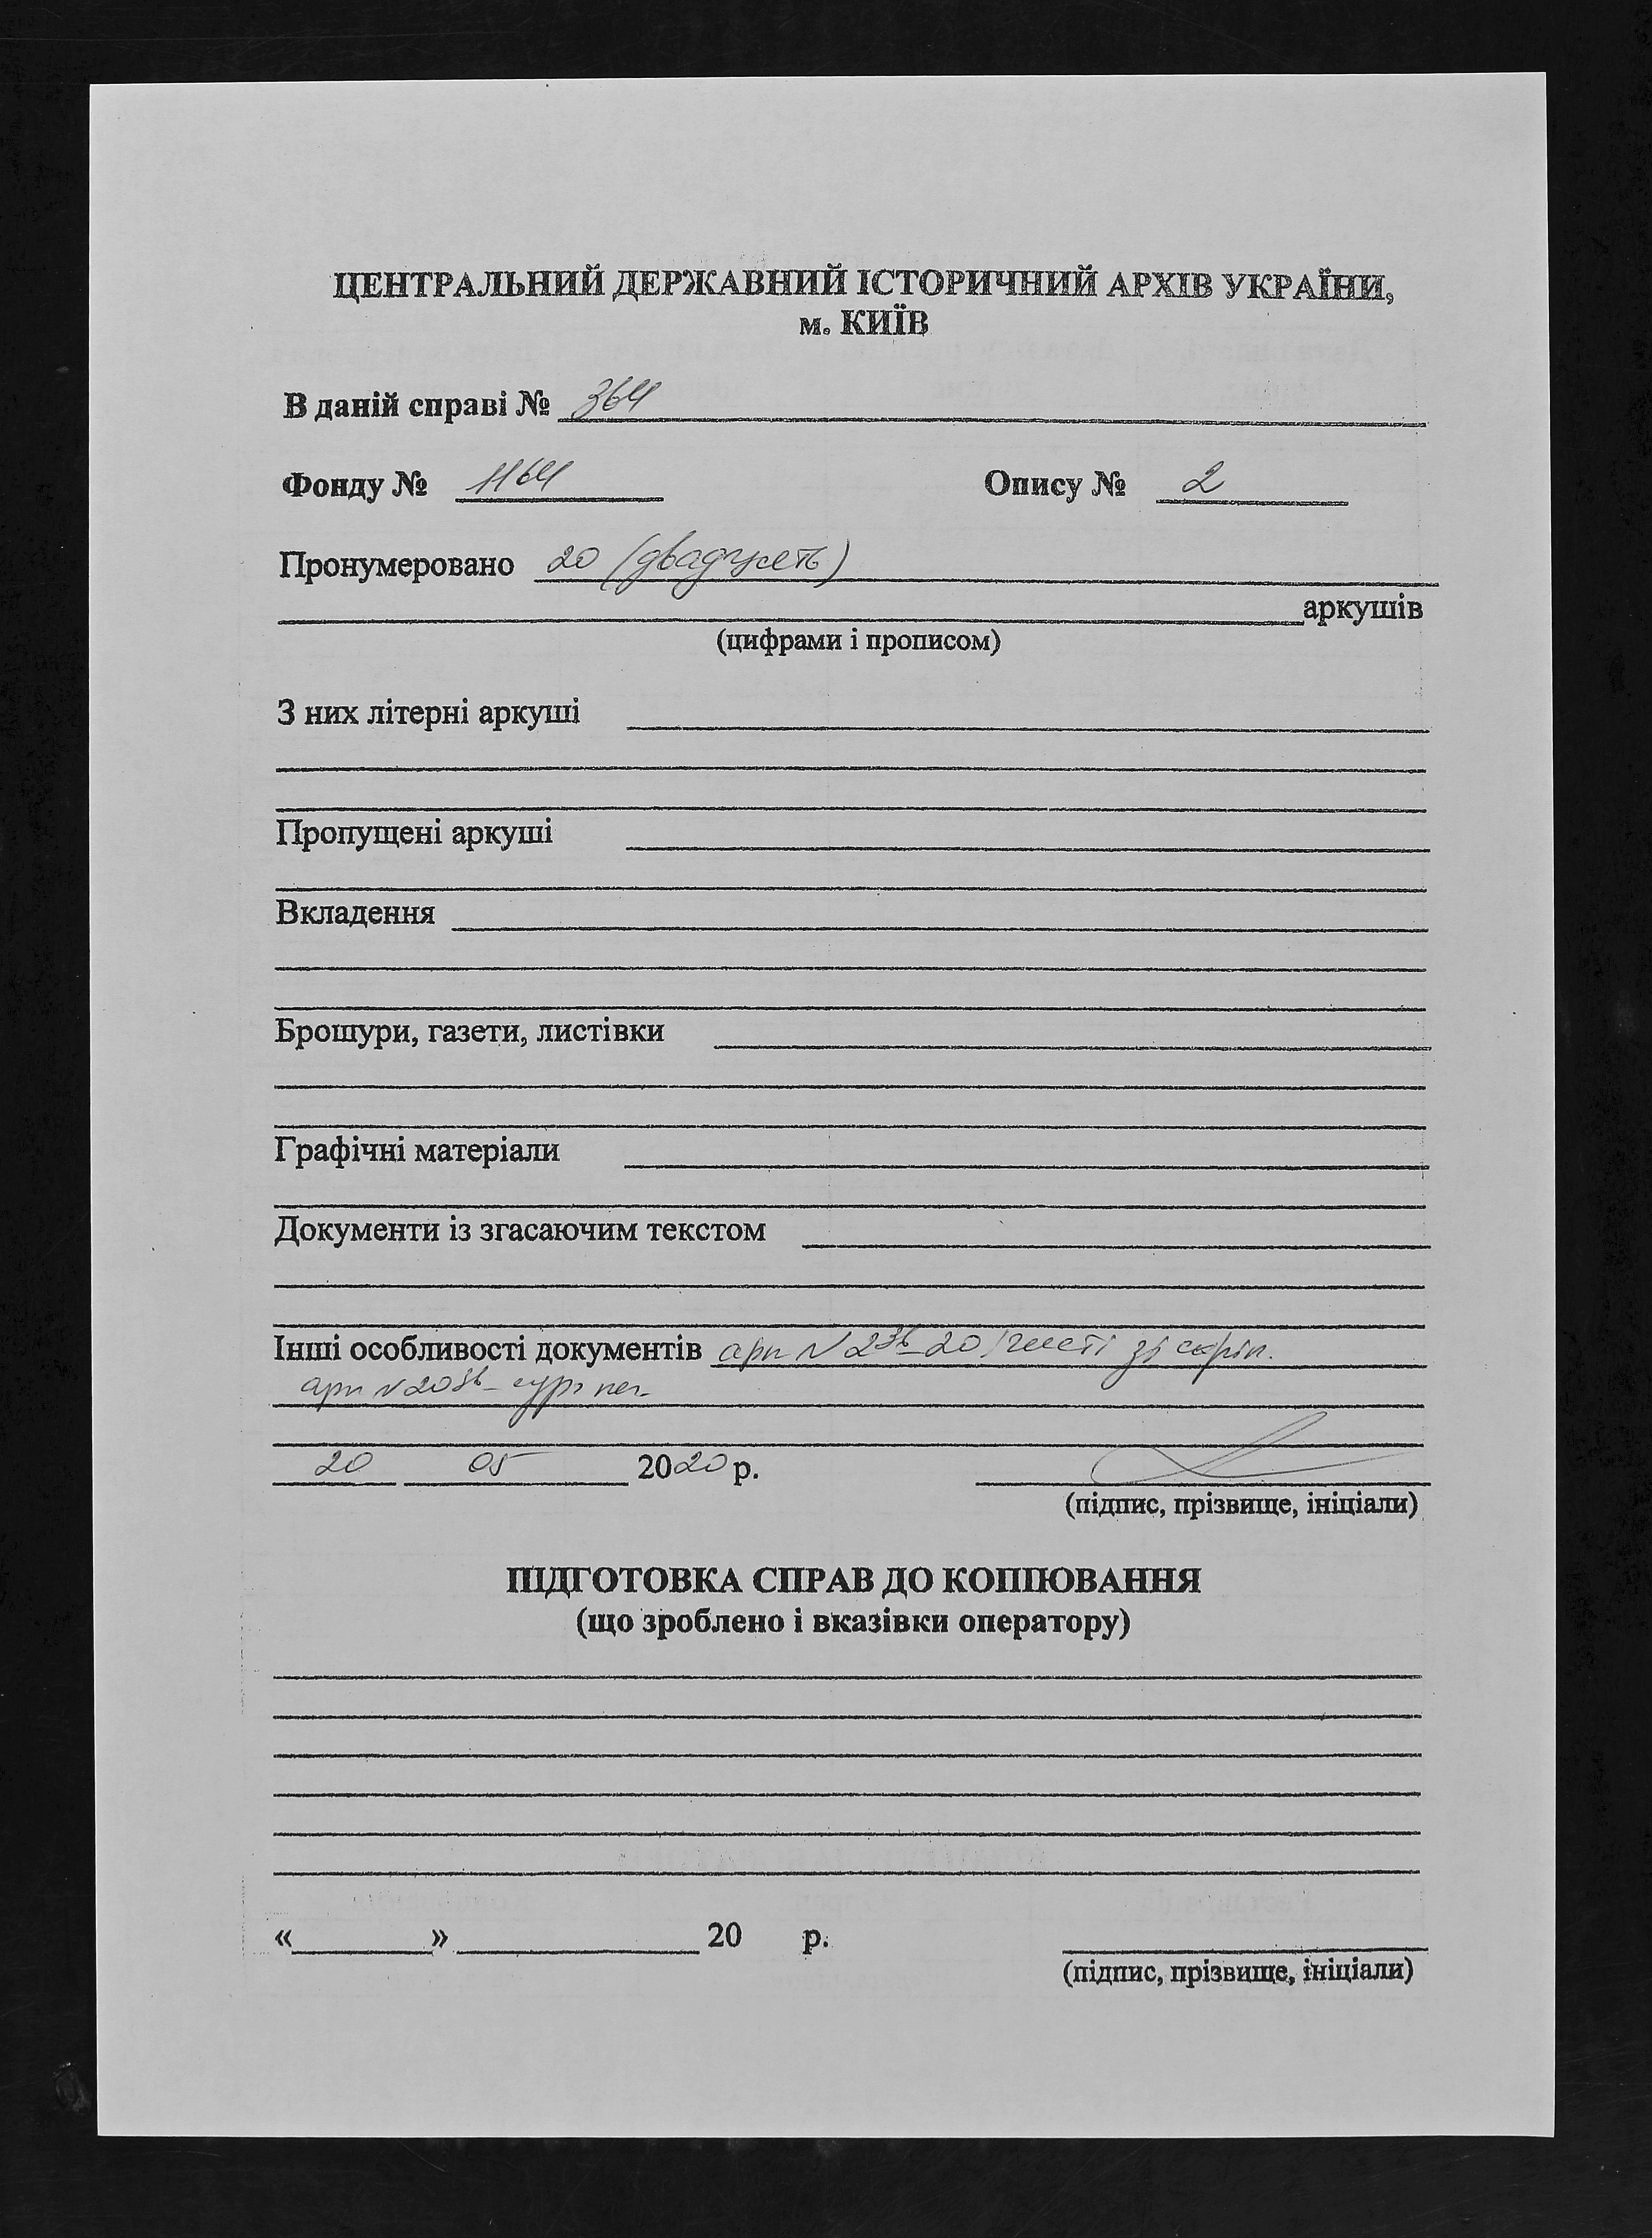 ЦЕНТРАЛЬНИЙ ДЕРЖАВНИЙ ІСТОРИЧНИЙ АРХІВ УКРАЇНИ,
м. КИЇВ
В даній справі № 364
Фонду № 1164 Опису № 2
Пронумеровано 20 (двадцять)
аркушів
(цифрами і прописом)
З них літерні аркуші
Пропущені аркуші
Вкладення
Брошури, газети, листівки
Графічні матеріали
Документи із згасаючим текстом
Інші особливості документів арк N 2зв-20 чисті зі скріп.
арк N 20зв - сург печ.
20 05 2020 р.
(підпис, прізвище, ініціали)
ПІДГОТОВКА СПРАВ ДО КОПІЮВАННЯ
(що зроблено і вказівки оператору)
« » 20 р.
(підпис, прізвище, ініціали)